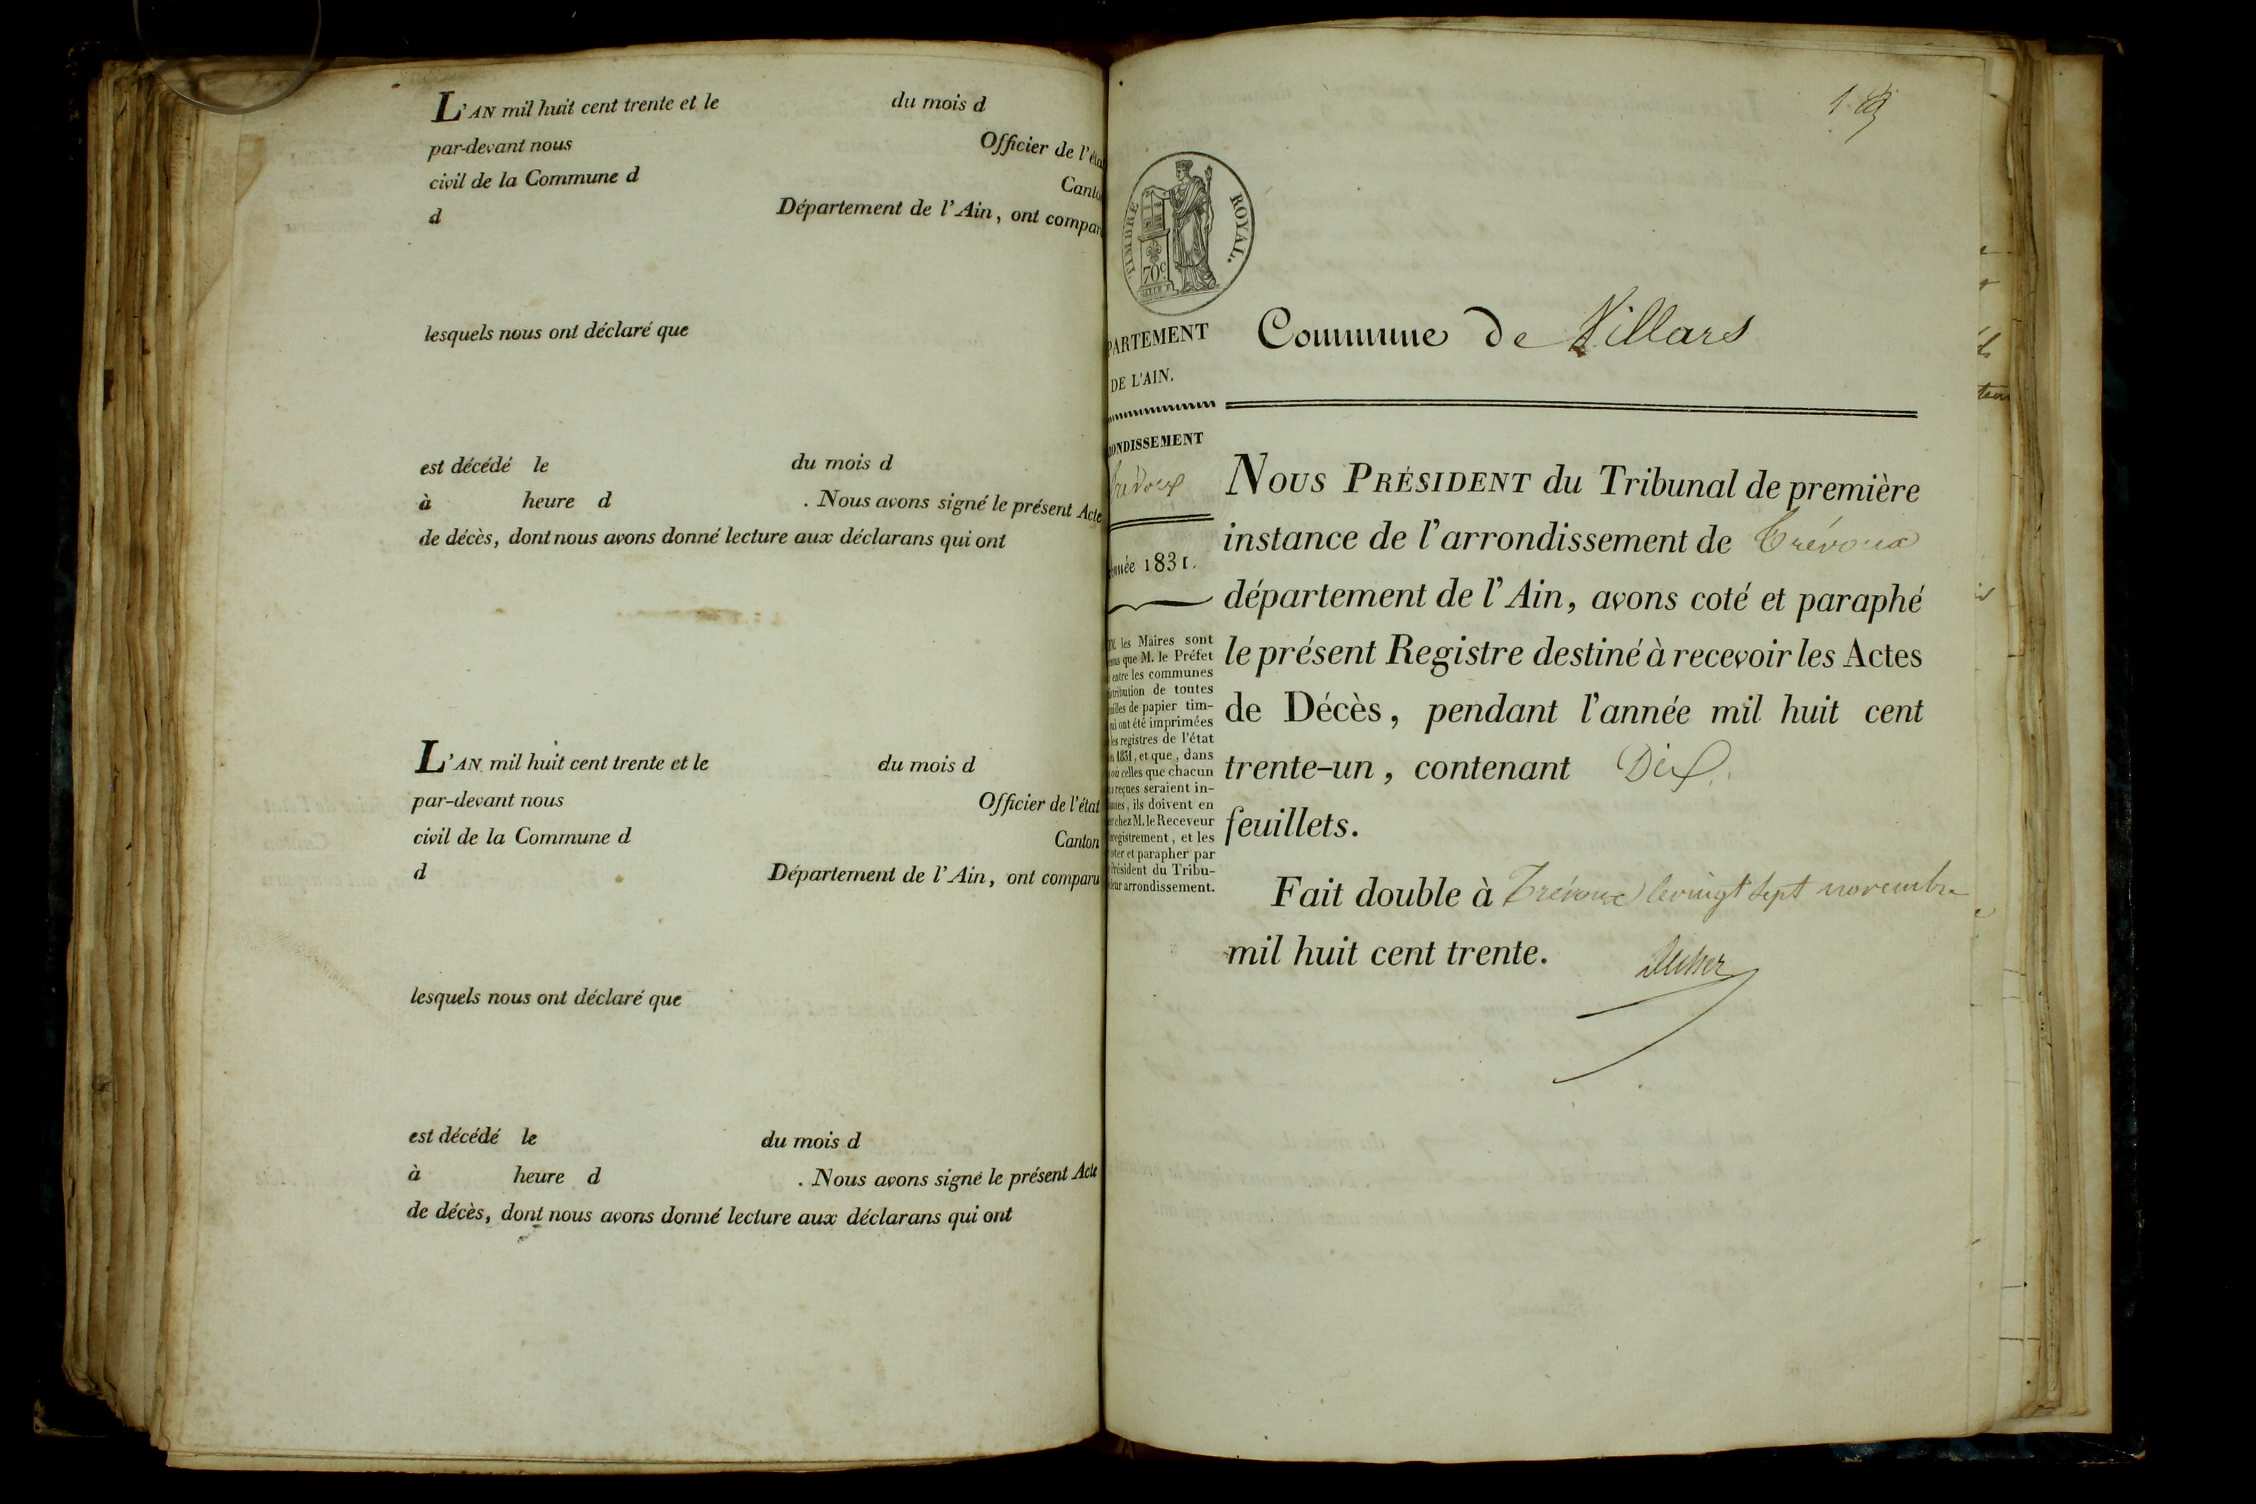 L'AN mil huit cent trente et le du mois d
par-devant nous Officier de l'état
civil de la Commune d Canto
d Département de l'Ain, ont compar
lesquels nous ont déclaré que
est décédé le du mois d
à heure d . Nous avons signé le présent Acte
de décès, dont nous avons donné lecture aux déclarans qui ont
L'AN mil huit cent trente et le du mois d
par-devant nous Officier de l'état
civil de la Commune d Canton
d Département de l'Ain, ont comparu
lesquels nous ont déclaré que
est décédé le du mois d
à heure d . Nous avons signé le présent Acte
de décès, dont nous avons donné lecture aux déclarans qui ont
TIMBRE ROYAL.
70c
PARTEMENT
DE L'AIN.
ONDISSEMENT
Trévoux
nnée 1831.
les Maires sont
que M. le Préfet
entre les communes
tribution de toutes
illes de papier tim-
ui ont été imprimées
les registres de l'état
1831, et que, dans
où celles que chacun
reçues seraient in-
, ils doivent en
chez M. le Receveur
registrement, et les
oter et parapher par
Président du Tribu-
leur arrondissement.
Commune de Villars
NOUS PRÉSIDENT du Tribunal de première
instance de l'arrondissement de Trévoux
département de l'Ain, avons coté et paraphé
le présent Registre destiné à recevoir les Actes
de Décès, pendant l'année mil huit cent
trente-un, contenant Dix
feuillets.
Fait double à Trévoux le vingt sept novembre
mil huit cent trente.